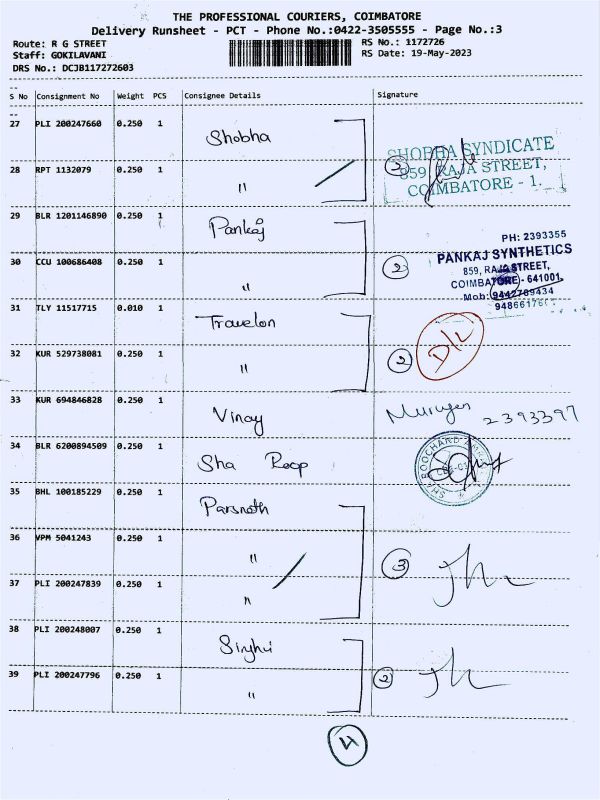 THE PROFESSIONAL COURIERS, COIMBATORE
Delivery Runsheet - PCT - Phone No.:0422-3505555 - Page No.:3
Route: R G STREET RS No.: 1172726
Staff: GOKILAVANI RS Date: 19-May-2023
DRS No.: DCJB117272603
S No Consignment No Weight PCS Consignee Details Signature
27 PLI 200247660 0.250 1 Shobha
SHOBHA SYNDICATE
859, RAJA STREET,
COIMBATORE - 1.
28 RPT 1132079 0.250 1 " 2
29 BLR 1201146890 0.250 1 Pankaj
PH: 2393355
PANKAJ SYNTHETICS
859, RAJA STREET,
COIMBATORE - 641001
Mob: 9442789434
30 CCU 100686408 0.250 1 " 2
31 TLY 11517715 0.010 1 Travelon D/L
32 KUR 529738081 0.250 1 " 2
33 KUR 694846828 0.250 1 Vinay Murugan 2393397
34 BLR 6200894509 0.250 1 Sha Roop
35 BHL 100185229 0.250 1 Parsnath
36 VPM 5041243 0.250 1 " 3
37 PLI 200247839 0.250 1 "
38 PLI 200248007 0.250 1 Singhvi
39 PLI 200247796 0.250 1 " 2